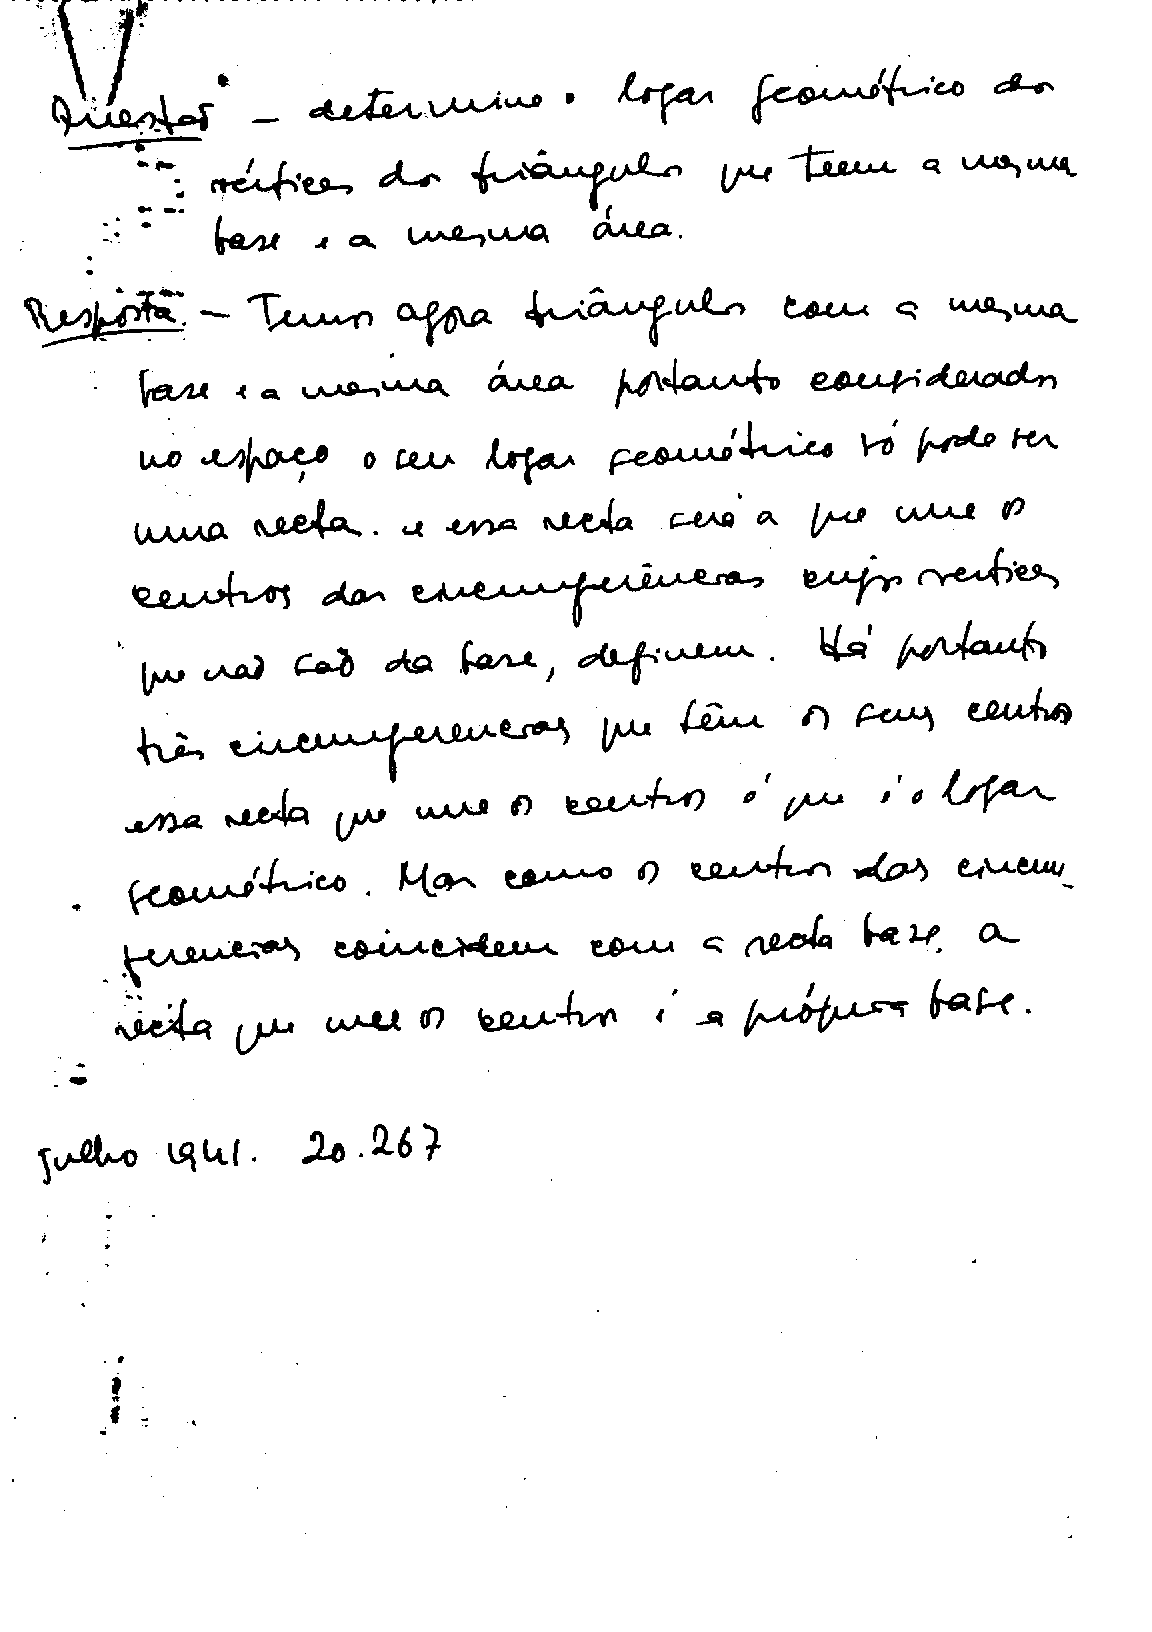 Questão - determine o logar geométrico dos
vértices dos triângulos que teem a mesma
base e a mesma área.
Resposta. - Temos agora triângulos com a mesma
base e a mesma área portanto considerados
no espaço o seu logar geométrico só pode ser
uma recta. e essa recta será a que une os
centros das circumferências cujos vertices
que não são da base, definem. Há portanto
três circumferencias que têm os seus centros
essa recta que une os centros é que é o logar
geométrico. Mas como os centros das circum_
ferencias coincidem com a recta base, a
recta que une os centros é a própria base.
Julho 1941. 20.267